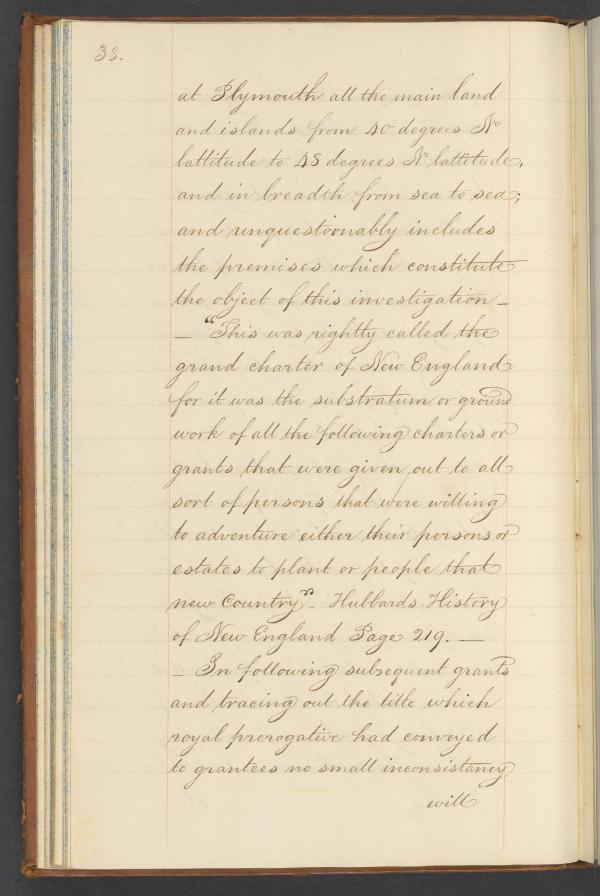 38.
at Plymouth all the main land
and islands from 40 degrees No
lattitude to 48 degrees No lattitude,
and in breadth from sea to sea;
and unquestoonably includes
the premises which constitute
the object of this investigation _
_ "This was rightly called the
grand charter of New England
for it was the substratum or ground
work of all the following charters or
grants that were given out to all
sort of persons that were willing
to adventure either their persons or
estates to plant or people that
new Country" _ Hubbards History
of New England Page 219. —
_ In following subsequent grants
and tracing out the title which
royal prerogative had conveyed
to grantees no small inconsistancy
will